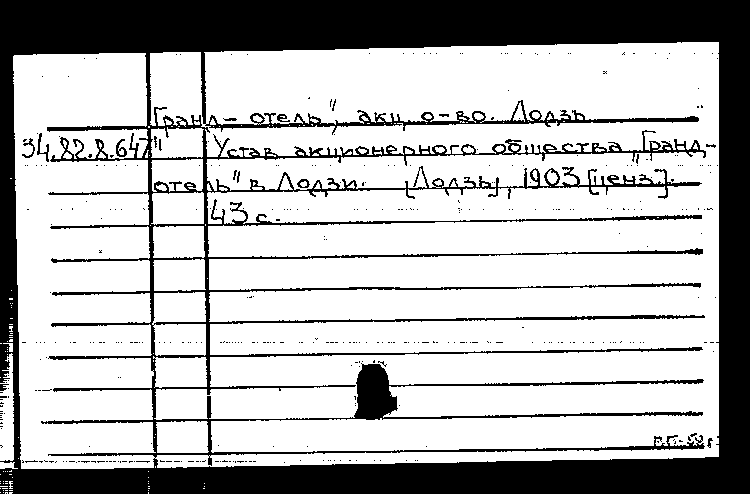 „Гранд-отель", акц. о-во. Лодзь
34.82.8.647 Устав акционерного общества „Гранд-
отель" в Лодзи. [Лодзь], 1903 [ценз.].
43 с.